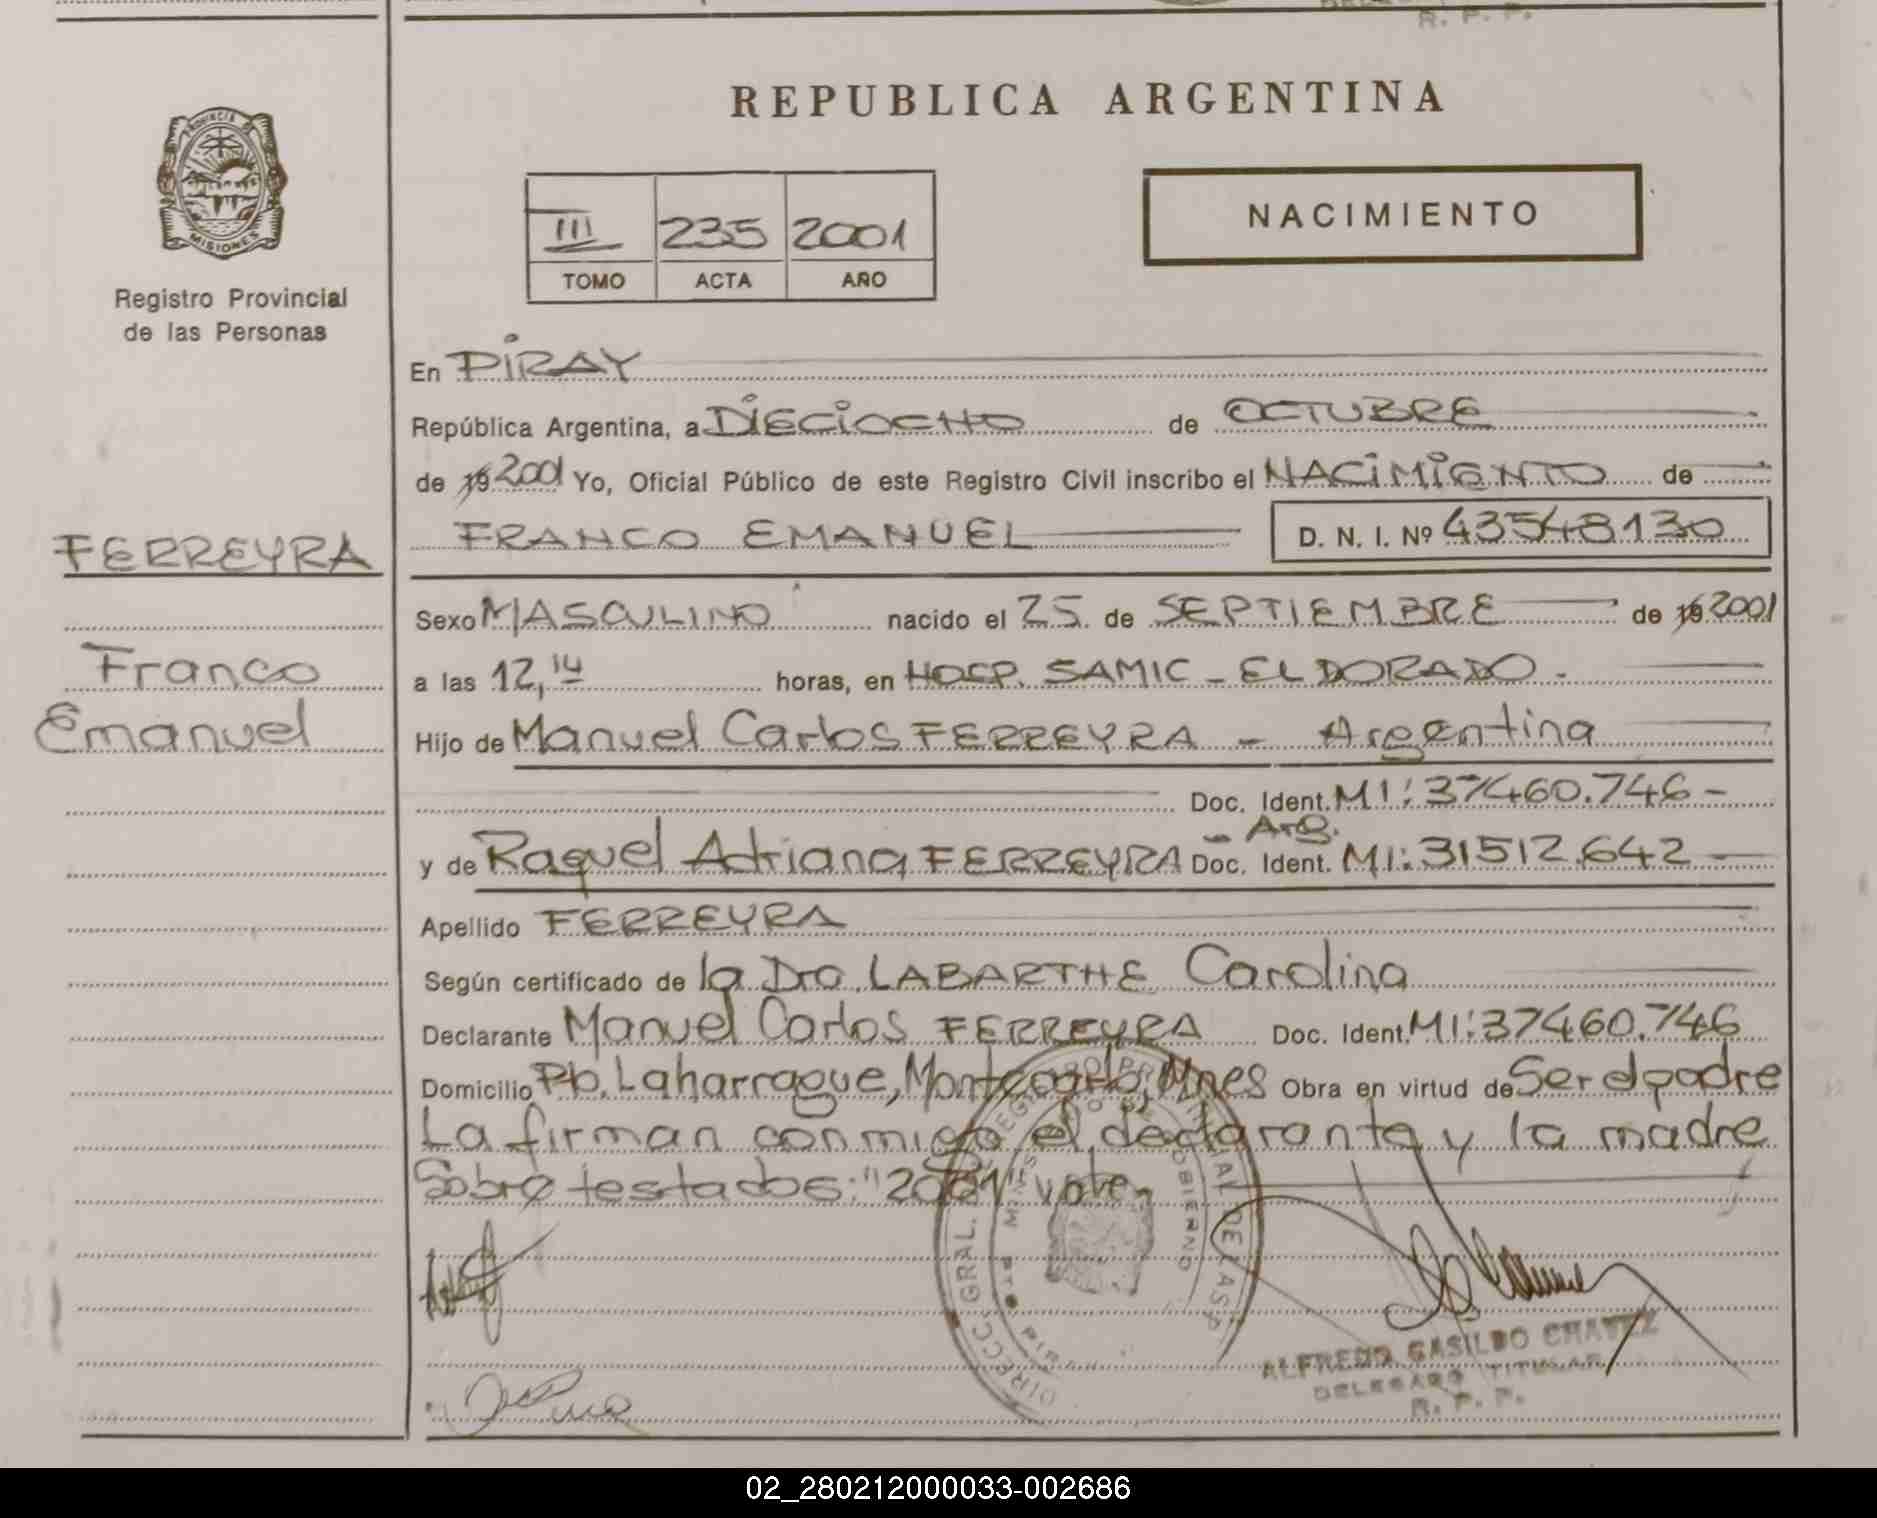 R. P. P.
REPUBLICA ARGENTINA
PROVINCIA DE
MISIONES
Registro Provincial
de las Personas
III 235 2001
TOMO ACTA AÑO
NACIMIENTO
En PIRAY
República Argentina, a DIECIOCHO de OCTUBRE
de 19 2001 Yo, Oficial Público de este Registro Civil inscribo el NACIMIENTO de
FRANCO EMANUEL D. N. I. Nº 43548130
FERREYRA
Franco
Emanuel
Sexo MASCULINO nacido el 25 de SEPTIEMBRE de 19 2001
a las 12,14 horas, en HOSP. SAMIC - ELDORADO.-
Hijo de Manuel Carlos FERREYRA - Argentina
Doc. Ident. MI: 37460.746-
- Arg.
y de Raquel Adriana FERREYRA Doc. Ident. MI: 31512.642
Apellido FERREYRA
Según certificado de la Dra. LABARTHE Carolina
Declarante Manuel Carlos FERREYRA Doc. Ident. MI: 37460.746
Domicilio Pto. Laharrague, Montecarlo, Mnes Obra en virtud de Ser el padre
La firman conmigo el declarante y la madre
Sobre testados: "2001" vale.
DIRECC. GRAL. DE LAS P
ALFREDO CASILDO CHAVEZ
DELEGADO TITULAR
R. P. P.
02_280212000033-002686